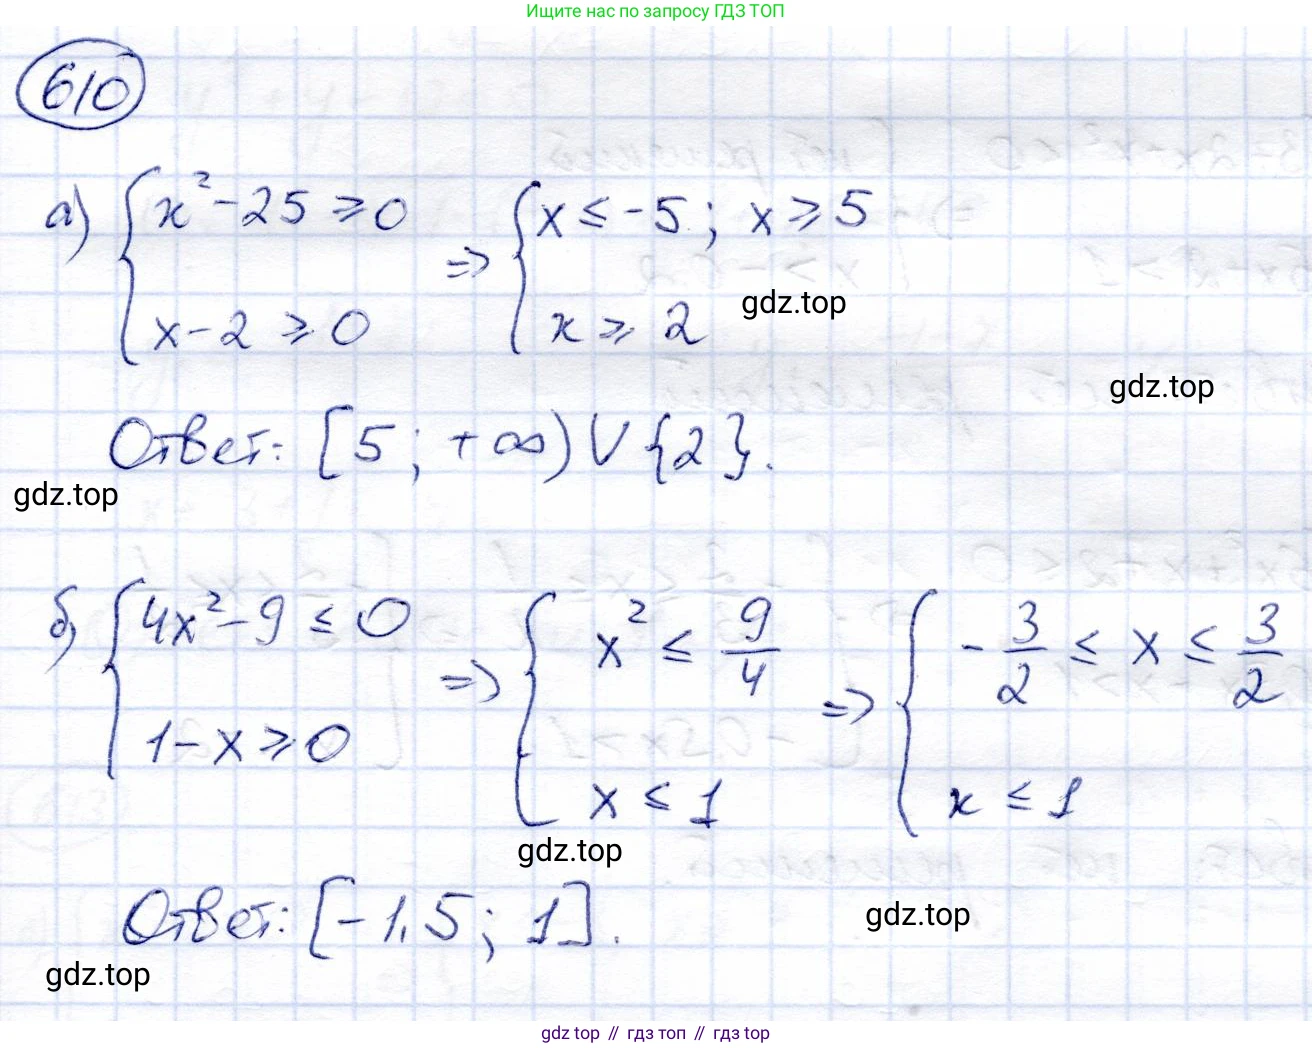 Ищите нас по запросу ГДЗ ТОП
610
а) { x² - 25 ≥ 0 => { x ≤ -5; x ≥ 5
x - 2 ≥ 0 x ≥ 2
gdz.top
gdz.top
Ответ: [5; +∞) ∪ {2}.
gdz.top
б) { 4x² - 9 ≤ 0 => { x² ≤ 9/4 => { - 3/2 ≤ x ≤ 3/2
1 - x ≥ 0 x ≤ 1 x ≤ 1
gdz.top
Ответ: [-1,5; 1].
gdz.top
gdz.top
gdz top // гдз топ // гдз top